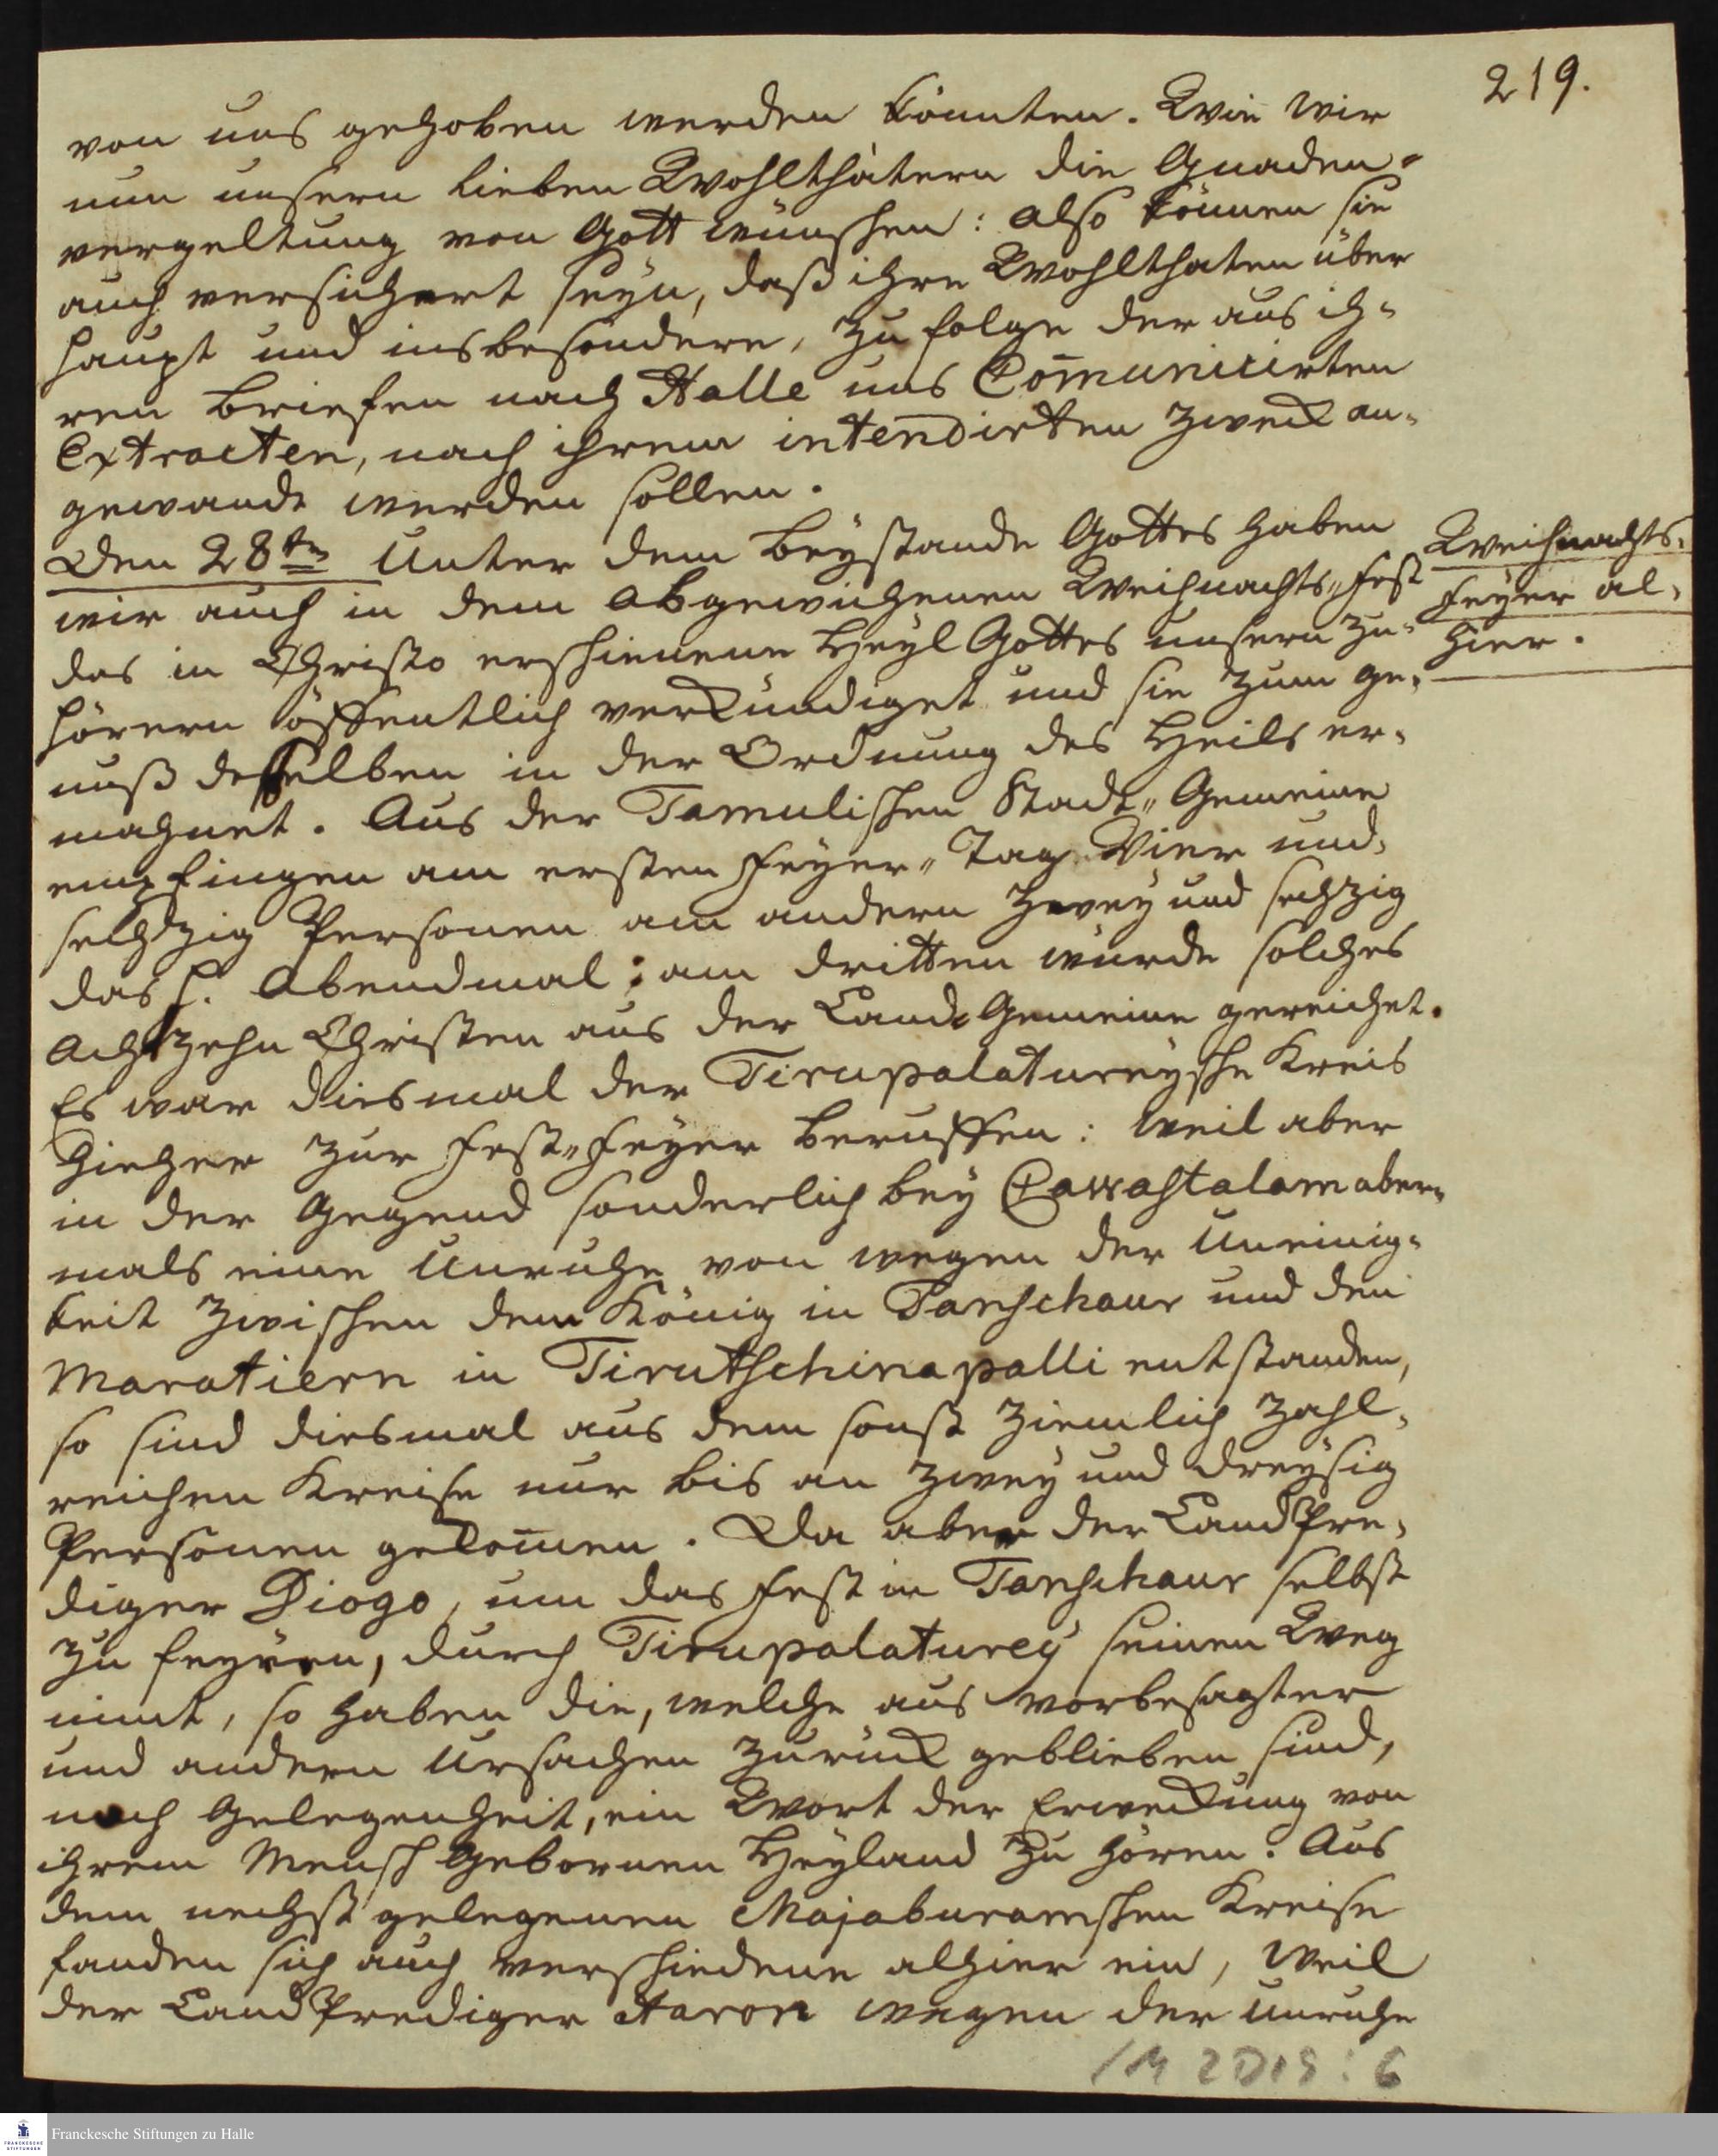 219.
von uns gehoben werden könnten. Wie wir
nun unsern lieben Wohlthätern die Gnaden-
vergeltung von Gott wünschen: also können sie
auch versichert seyn, daß ihre Wohlthaten über
haupt und insbesondere, zu folge der aus ih-
ren Briefen nach Halle uns Com̄unicirten
Extracten, nach ihrem intendirten Zweck an-
gewandt werden sollen.
Den 28ten Unter dem Beystande Gottes haben
wir auch in dem abgewichenen Weihnachts-Fest
das in Christo erschienene Heyl Gottes unsern Zu-
hörern öffentlich verkündiget und sie zum ge-
nuß desselben in der Ordnung des Heils er-
mahnet. Aus der Tamulischen Stadt-Gemeine
empfingen am ersten Feyer-Tag Vier und
sechzig Personen am andern Zwey und sechzig
das h. Abendmal; am dritten wurde solches
Achtzehn Christen aus der Land-Gemeine gereichet.
Es war diesmal der Tirupalatureysche Kreis
hieher zur Fest-Feyer beruffen: weil aber
in der Gegend sonderlich bey Cawastalam aber-
mals eine Unruhe von wegen der Uneinig-
keit zwischen dem König in Tanschaur und den
Maratiern in Tirutschinapalli entstanden,
so sind diesmal aus dem sonst ziemlich zahl-
reichen Kreise nur bis an zwey und dreysig
Personen gekom̄en. Da aber der LandPre-
diger Diogo, um das Fest in Tanschaur selbst
zu feyren, durch Tirupalaturey seinen Weg
nimt, so haben die, welche aus vorbesagter
und andern Ursachen zurück geblieben sind,
noch Gelegenheit, ein Wort der Erweckung von
ihrem Mensch Gebornen Heyland zu hören. Aus
dem nechst gelegenen Majaburamschen Kreise
fanden sich auch verschiedene alhier ein, weil
der LandPrediger Aaron wegen der Unruhe
Weihnachts-
Feyer al-
hier.
1M 2D19:6
FRANCKESCHE
STIFTUNGEN
Franckesche Stiftungen zu Halle